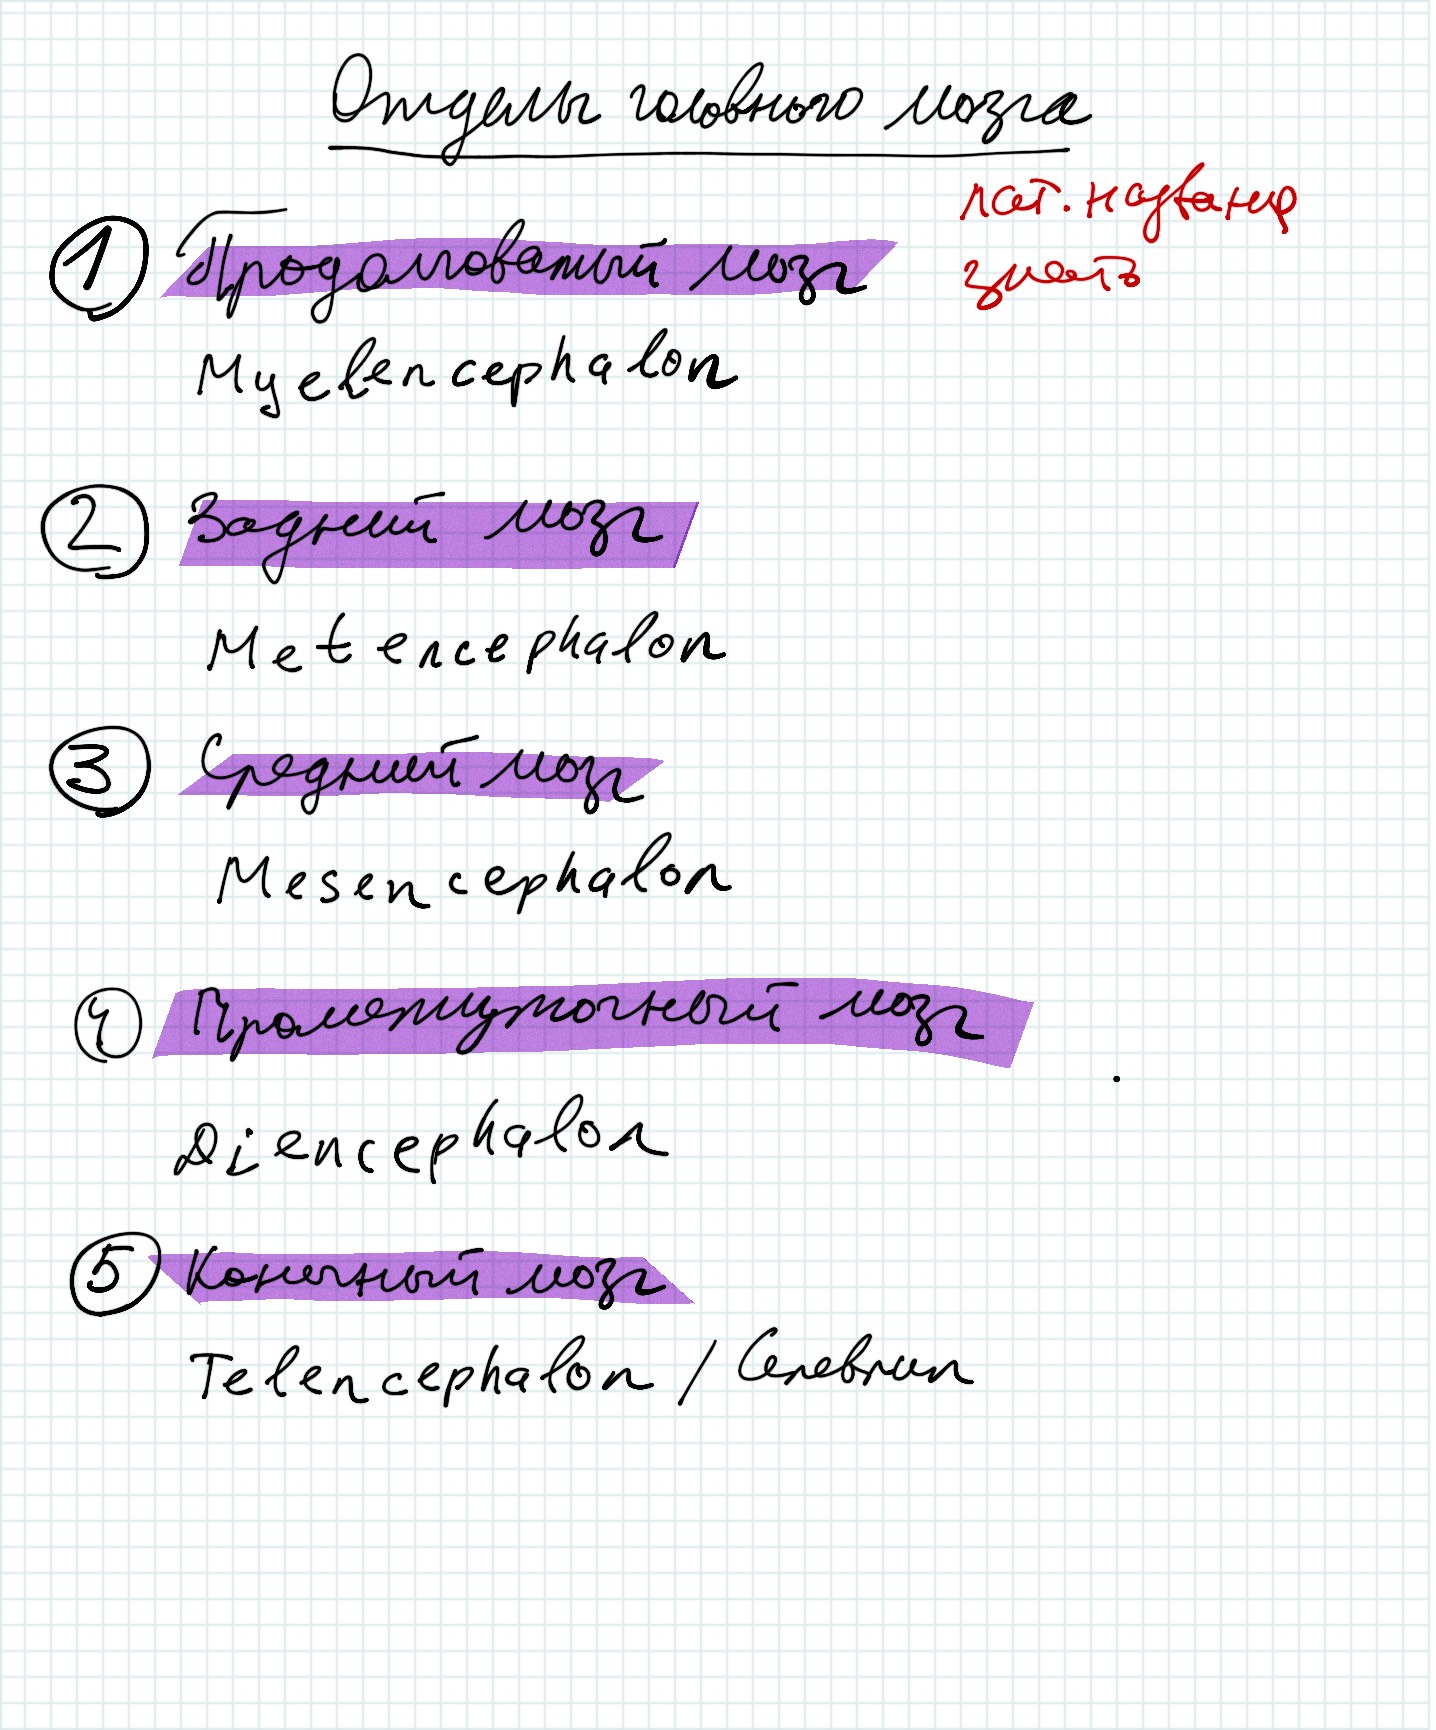 Отделы головного мозга
лат. название
знать
1 Продолговатый мозг
Myelencephalon
2 Задний мозг
Metencephalon
3 Средний мозг
Mesencephalon
4 Промежуточный мозг
Diencephalon
5 Конечный мозг
Telencephalon / Cerebrum